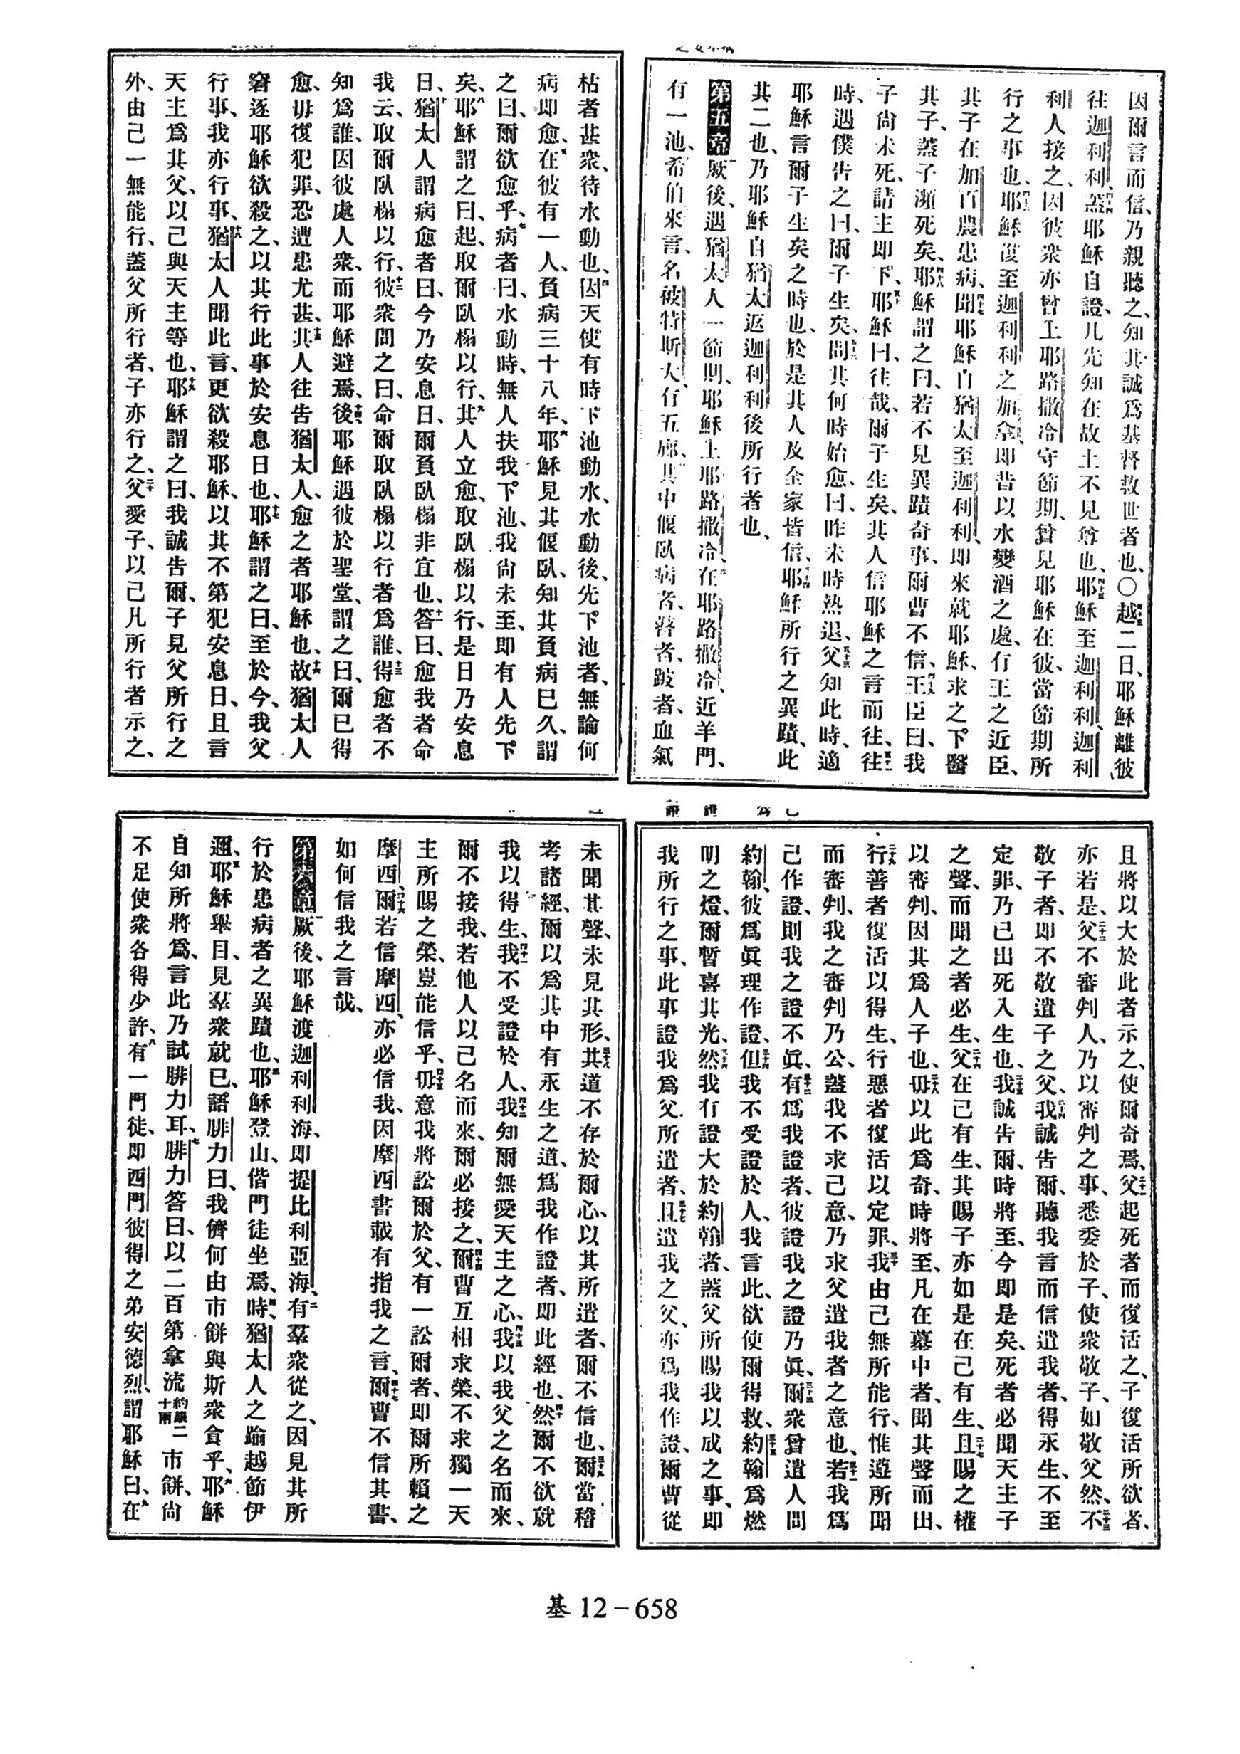 因爾言而信、乃親聽之、知其誠爲基督救世者也、○越二日、耶穌離彼
往迦利利、蓋耶穌自證、凡先知在故土不見尊也、耶穌至迦利利、迦利
利人接之、因彼衆亦曾上耶路撒冷守節期、曾見耶穌在彼、當節期所
行之事也、耶穌復至迦利利之加拿、即昔以水變酒之處、有王之近臣、
其子在加百農患病、聞耶穌自猶太至迦利利、即來就耶穌、求之下醫
其子、蓋子瀕死矣、耶穌謂之曰、若不見異蹟奇事、爾曹不信、王臣曰、我
子尙未死、請主即下、耶穌曰、往哉、爾子生矣、其人信耶穌之言而往、往
時、遇僕告之曰、爾子生矣、問其何時始愈、曰、昨未時熱退、父知此時、適
耶穌言爾子生矣之時也、於是其人及全家皆信、耶穌所行之異蹟、此
其二也、乃耶穌自猶太返迦利利後所行者也、
第五章 厥後、遇猶太人一節期、耶穌上耶路撒冷、在耶路撒冷、近羊門、
有一池、希伯來言、名彼特斯大、有五廊、其中偃臥病者、瞽者、跛者、血氣
枯者甚衆、待水動也、因天使有時下池動水、水動後、先下池者、無論何
病即愈、在彼有一人、負病三十八年、耶穌見其偃臥、知其負病已久、謂
之曰、爾欲愈乎、病者曰、水動時、無人扶我下池、我尙未至、即有人先下
矣、耶穌謂之曰、起、取爾臥榻以行、其人立愈、取臥榻以行、是日乃安息
日、猶太人謂病愈者曰、今乃安息日、爾負臥榻非宜也、答曰、愈我者命
我云、取爾臥榻以行、彼衆問之曰、命爾取臥榻以行者爲誰、得愈者不
知爲誰、因彼處人衆、而耶穌避焉、後耶穌遇彼於聖堂、謂之曰、爾已得
愈、毋復犯罪、恐遭患尤甚、其人往吿猶太人、愈之者耶穌也、故猶太人
窘逐耶穌欲殺之、以其行此事於安息日也、耶穌謂之曰、至於今、我父
行事、我亦行事、猶太人聞此言、更欲殺耶穌、以其不第犯安息日、且言
天主爲其父、以己與天主等也、耶穌謂之曰、我誠吿爾、子見父所行之
外、由己一無能行、蓋父所行者、子亦行之、父愛子、以己凡所行者示之、
且將以大於此者示之、使爾奇焉、父起死者而復活之、子復活所欲者、
亦若是、父不審判人、乃以審判之事、悉委於子、使衆敬子、如敬父然、不
敬子者、即不敬遣子之父、我誠吿爾、聽我言而信遣我者、得永生、不至
定罪、乃已出死入生也、我誠吿爾、時將至、今即是矣、死者必聞天主子
之聲、而聞之者必生、父在己有生、其賜子亦如是在己有生、且賜之權
以審判、因其爲人子也、毋以此爲奇、時將至、凡在墓中者、聞其聲而出、
行善者復活以得生、行惡者復活以定罪、我由己無所能行、惟遵所聞
而審判、我之審判乃公、蓋我不求己意、乃求父遣我者之意也、若我爲
己作證、則我之證不眞、有爲我證者、彼證我之證乃眞、爾衆曾遣人問
約翰、彼爲眞理作證、但我不受證於人、我言此、欲使爾得救、約翰爲燃
明之燈、爾暫喜其光、然我有證大於約翰者、蓋父所賜我以成之事、即
我所行之事、此事證我爲父所遣者、且遣我之父、亦爲我作證、爾曹從
未聞其聲、未見其形、其道不存於爾心、以其所遣者、爾不信也、爾當稽
考諸經、爾以爲其中有永生之道、爲我作證者、即此經也、然爾不欲就
我以得生、我不受證於人、我知爾無愛天主之心、我以我父之名而來、
爾不接我、若他人以己名而來、爾必接之、爾曹互相求榮、不求獨一天
主所賜之榮、豈能信乎、毋意我將訟爾於父、有一訟爾者、即爾所賴之
摩西、爾若信摩西、亦必信我、因摩西書載有指我之言、爾曹不信其書、
如何信我之言哉、
第六章 厥後、耶穌渡迦利利海、即提比利亞海、有羣衆從之、因見其所
行於患病者之異蹟也、耶穌登山、偕門徒坐焉、時猶太人之踰越節伊
邇、耶穌舉目、見羣衆就已、語腓力曰、我儕何由市餅與斯衆食乎、耶穌
自知所將爲、言此乃試腓力耳、腓力答曰、以二百第拿流約銀二十兩市餅、尙
不足使衆各得少許、有一門徒、即西門彼得之弟安德烈、謂耶穌曰、在
基12－658